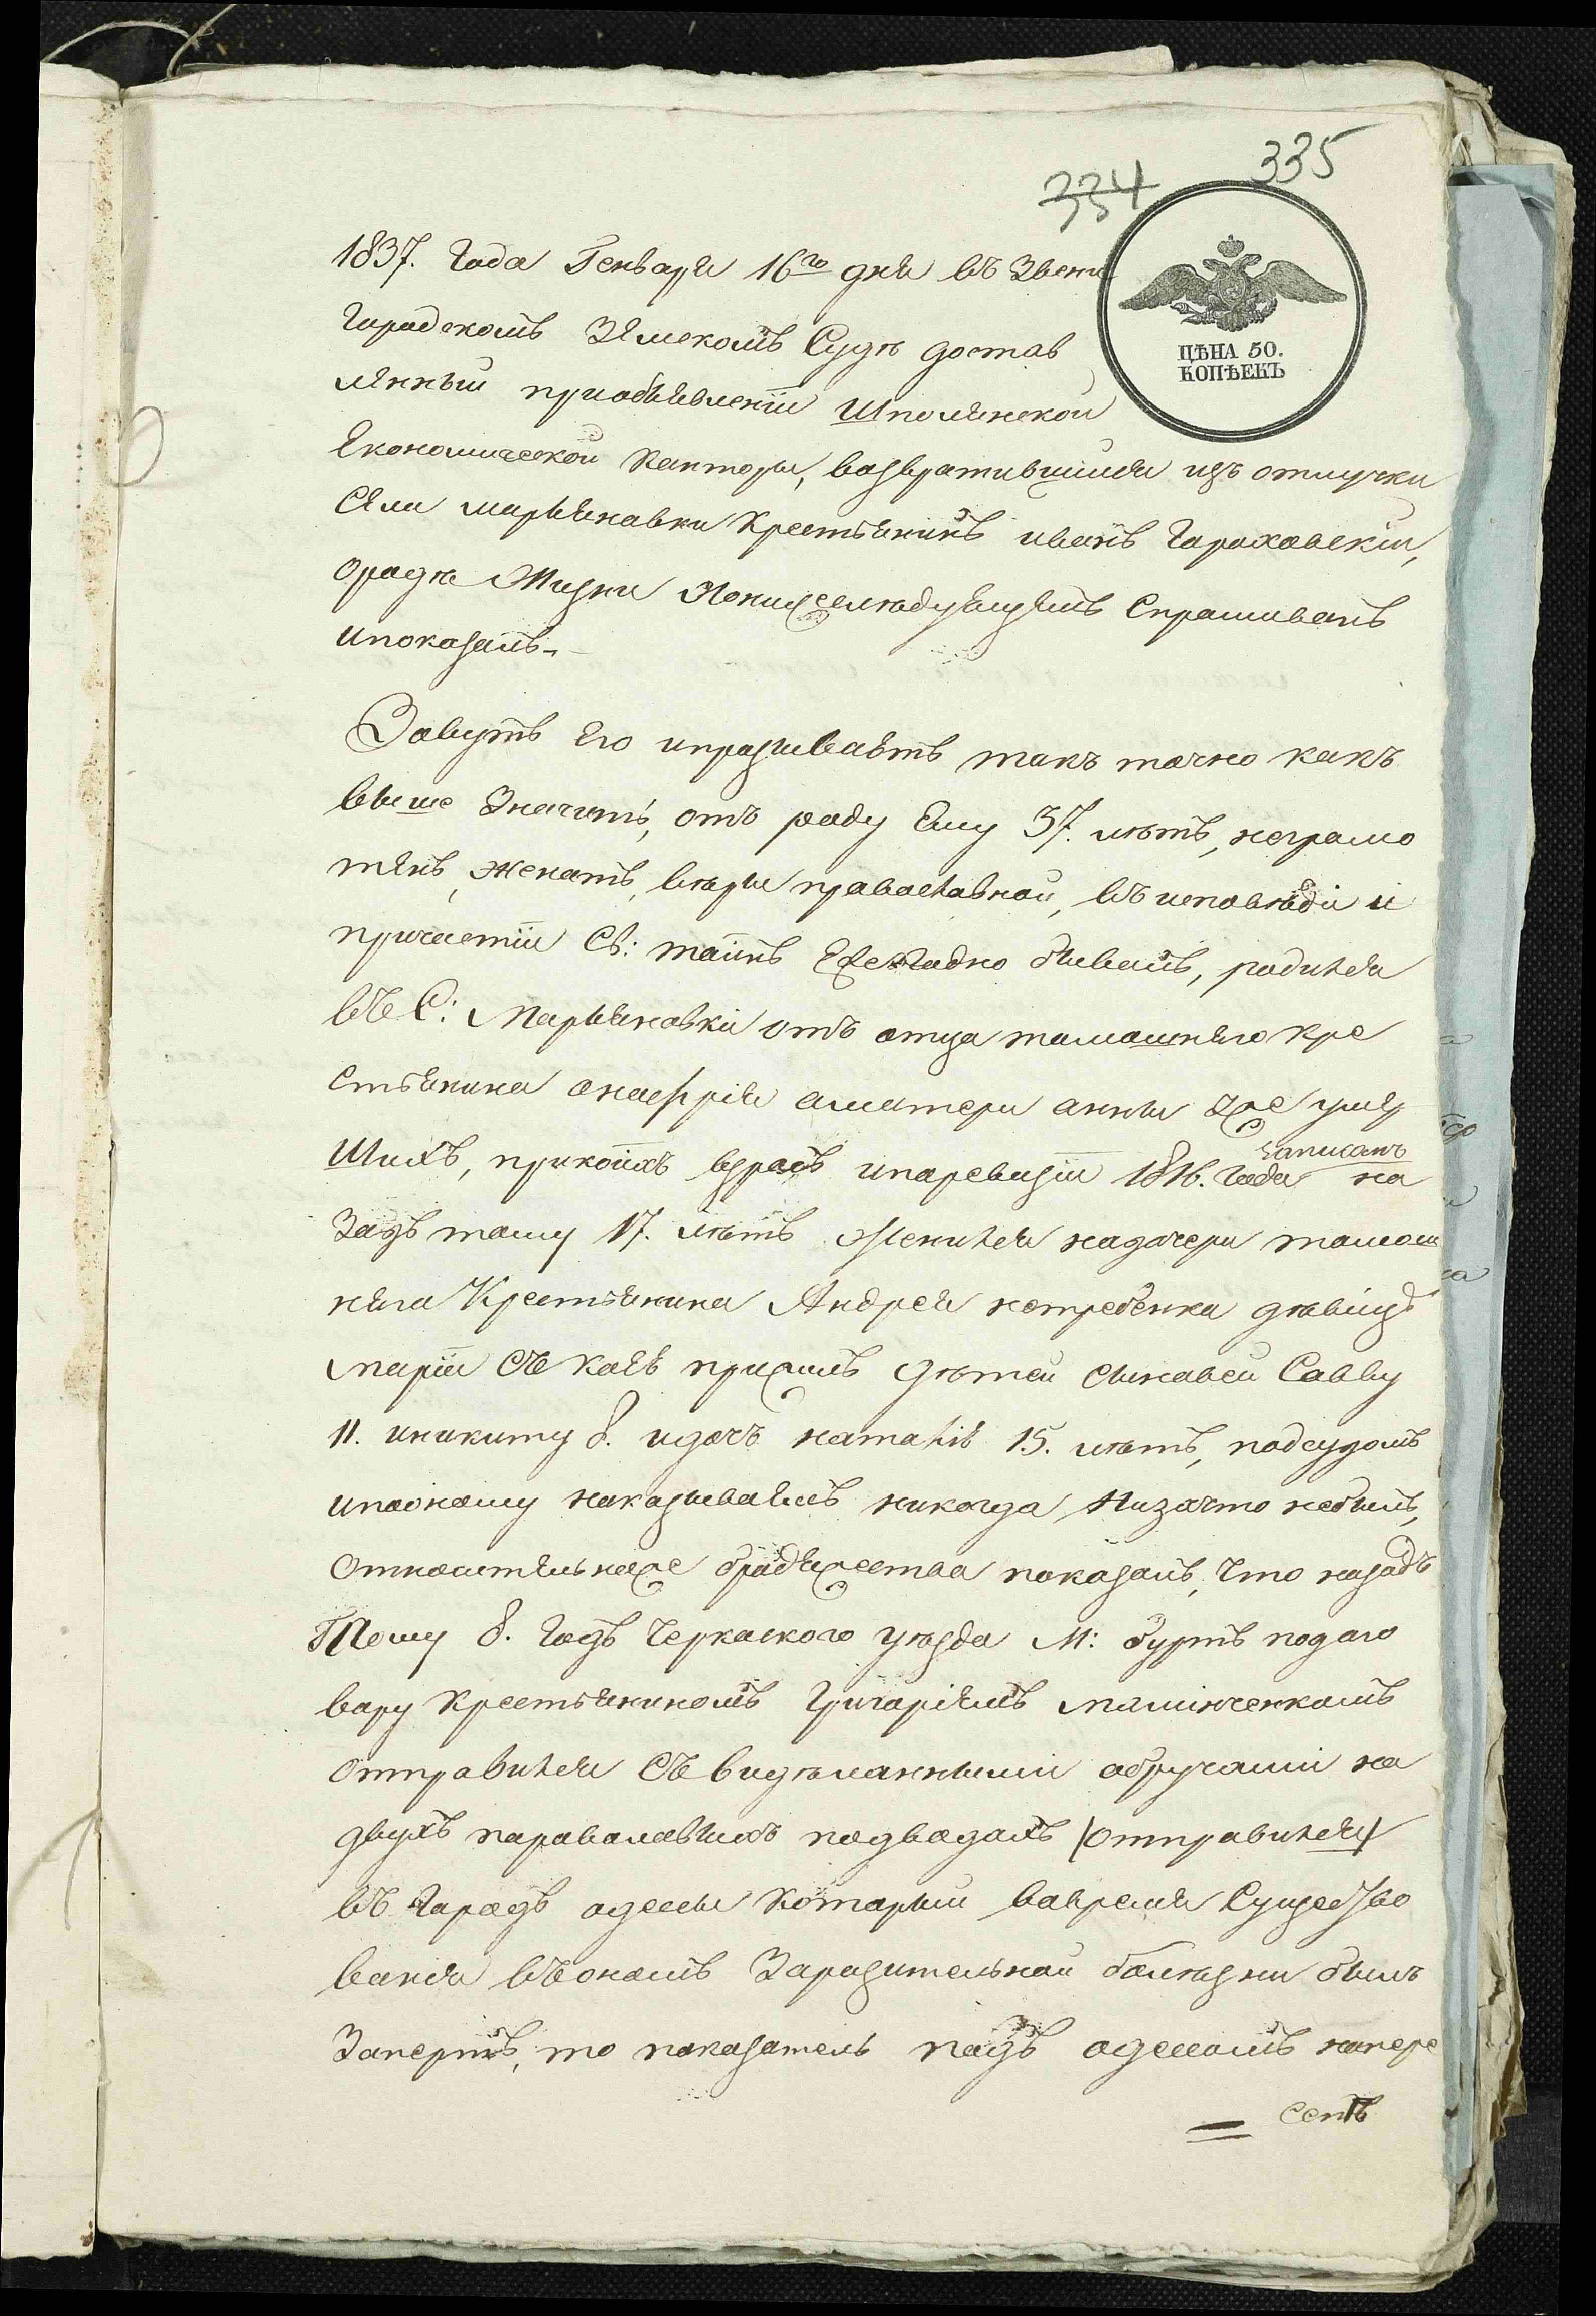 334 335
ЦѢНА 50.
КОПѢЕКЪ
1837. Года Генваря 16го дня въ Звени
городскомъ Земскомъ Судѣ достав
лянный приобъявленіи Шполянской
Економической Канторы, возвратившійся изъ отлучки
Села марьяновки Крестьянинъ иванъ Гороховскій,
орадѣ Жизни Нонижеслѣдующемъ Спрашиванъ
ипоказалъ.
Зовутъ Его ипрозиваетъ такъ точно какъ
выше Значитъ, отъ роду Ему 37. лѣтъ, неграмо
тянъ, женатъ, вѣры православной, въ исповѣди и
причастіи Св: таинъ Ежегодно бывалъ, родился
въ С: Марьяновки отъ отца тамошняго кре
стьянина онафрія аматери анны уже умер
Шихъ, прикоихъ взросъ ипаревизіи 1816. года записанъ
Задъ тому 17. лѣтъ Женился надочери тамош на
няго Крестьянина Андрея нетребенка дѣвицѣ
маріи Съ коей прижилъ дѣтей сыновей Савву
11. иникиту 8. идочъ наталію 15. лѣтъ, подсудомъ
ипооному наказываемъ никогда низачто небылъ,
Относительноже бродяжества показалъ, Что назадъ
Тому 8. Годъ Черкаского уѣзда М: буртъ подаго
вору Крестьяниномъ Григоріемъ
отправился Съ видѣланными обручами на
двухъ параволовыхъ подводахъ /отправился/
въ Городъ одессы который вовремя Существо
ванія въономъ Заразительной болѣзни былъ
Запертъ, то показатель подъ одессомъ напере
сепѣ